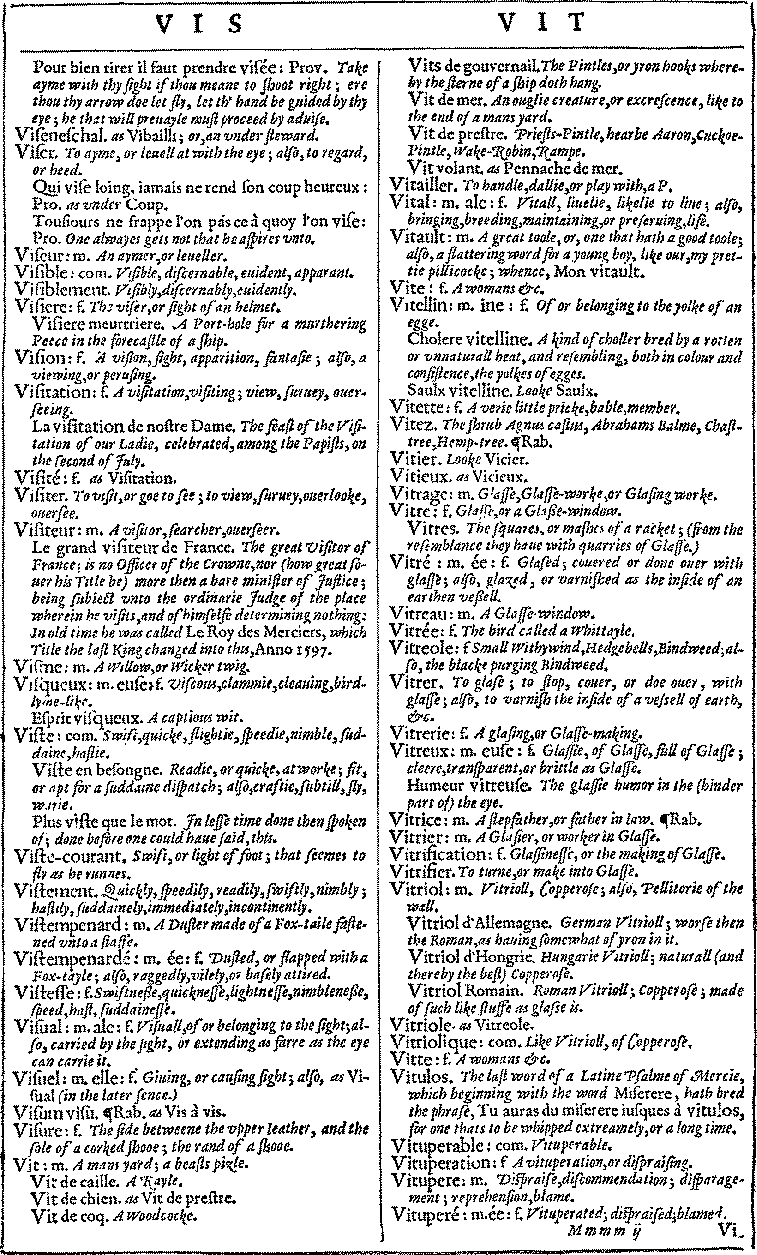 VIS
VIT
Pour bien tirer il faut prendre visée: Prov. Take
ayme with thy sight if thou meane to shoot right; ere
thou thy arrow doe let fly, let th' hand be guided by thy
eye; he that will prevayle must proceed by advise.
Viseneschal. as Vibailli; or, an vnder steward.
Viser. To ayme, or leuell at with the eye; also, to regard,
or heed.
Qui vise loing, iamais ne rend son coup heureux:
Pro. as vnder Coup.
Tousiours ne frappe l'on pas ce à quoy l'on vise:
Pro. One alwayes gets not that he aspires vnto.
Viseur: m. An aymer, or leueller.
Visible: com. Visible, discernable, euident, apparant.
Visiblement. Visibly, discernably, euidently.
Visiere: f. The viser, or sight of an helmet.
Visiere meurtriere. A Port-hole for a murthering
Peece in the forecastle of a ship.
Vision: f. A vision, sight, apparition, fantasie; also, a
viewing, or perusing.
Visitation: f. A visitation, visiting; view, suruey, ouer-
seeing.
La visitation de nostre Dame. The feast of the Visi-
tation of our Ladie, celebrated, among the Papists, on
the second of July.
Visité: f. as Visitation.
Visiter. To visit, or goe to see; to view, suruey, ouerlooke,
ouersee.
Visiteur: m. A visitor, searcher, ouerseer.
Le grand visiteur de France. The great Visitor of
France; is no Officer of the Crowne, nor (how great so-
uer his Title be) more then a bare minister of Justice;
being subiect vnto the ordinarie Judge of the place
wherein he visits, and of himselfe determining nothing:
In old time he was called Le Roy des Merciers, which
Title the last King changed into this, Anno 1597.
Visme: m. A Willow, or Wicker twig.
Visqueux: m. euse: f. Viscous, clammie, cleauing, bird-
lyme-like.
Esprit visqueux. A captious wit.
Viste: com. Swift, quicke, flightie, speedie, nimble, sud-
daine, hastie.
Viste en besongne. Readie, or quicke, at worke; fit,
or apt for a suddaine dispatch; also, craftie, subtill, sly,
warie.
Plus viste que le mot. In lesse time done then spoken
of; done before one could haue said, this.
Viste-courant. Swift, or light of foot; that seemes to
fly as he runnes.
Vistement. Quickly, speedily, readily, swiftly, nimbly;
hastily, suddainely, immediately, incontinently.
Vistempenard: m. A Duster made of a Fox-taile faste-
ned vnto a staffe.
Vistempenardé: m. ée: f. Dusted, or flapped with a
Fox-tayle; also, raggedly, vilely, or basely attired.
Vistesse: f. Swiftnesse, quicknesse, lightnesse, nimblenesse,
speed, hast, suddainesse.
Visual: m. ale: f. Visuall, of or belonging to the sight; al-
so, carried by the sight, or extending as farre as the eye
can carrie it.
Visuel: m. elle: f. Giuing, or causing sight; also, as Vi-
sual (in the later sence.)
Visum visu. ¶Rab. as Vis à vis.
Visure: f. The side betweene the vpper leather, and the
sole of a corked shooe; the rand of a shooe.
Vit: m. A mans yard; a beasts pizle.
Vit de caille. A Rayle.
Vit de chien. as Vit de prestre.
Vit de coq. A Woodcocke.
Vits de gouvernail. The Pintles, or yron hooks where-
by the sterne of a ship doth hang.
Vit de mer. An ouglie creature, or excrescence, like to
the end of a mans yard.
Vit de prestre. Priests-Pintle, hearbe Aaron, Cuckoe-
Pintle, Wake-Robin, Rampe.
Vit volant. as Pennache de mer.
Vitailler. To handle, dallie, or play with, a P.
Vital: m. ale: f. Vitall, liuelie, likelie to liue; also,
bringing, breeding, maintaining, or preseruing, life.
Vitault: m. A great toole, or, one that hath a good toole;
also, a flattering word for a young boy, like our, my pret-
tie pillicocke; whence, Mon vitault.
Vite: f. A womans &c.
Vitellin: m. ine: f. Of or belonging to the yolke of an
egge.
Cholere vitelline. A kind of choller bred by a rotten
or vnnaturall heat, and resembling, both in colour and
consistence, the yolkes of egges.
Saulx vitelline. Looke Saulx.
Vitette: f. A verie little pricke, bable, member.
Vitez. The shrub Agnus castus, Abrahams Balme, Chast-
tree, Hemp-tree. ¶Rab.
Vitier. Looke Vicier.
Vitieux. as Vicieux.
Vitrage: m. Glasse, Glasse-worke, or Glasing worke.
Vitre: f. Glasse, or a Glasse-window.
Vitres. The squares, or mashes of a racket; (from the
resemblance they haue with quarries of Glasse.)
Vitré: m. ée: f. Glased; couered or done ouer with
glasse; also, glazed, or varnished as the inside of an
earthen vessell.
Vitreau: m. A Glasse-window.
Vitrée: f. The bird called a Whittayle.
Vitreole: f Small Withywind, Hedgebells, Bindweed; al-
so, the blacke purging Bindweed.
Vitrer. To glase; to stop, couer, or doe ouer, with
glasse; also, to varnish the inside of a vessell of earth,
&c.
Vitrerie: f. A glasing, or Glasse-making.
Vitreux: m. euse: f. Glassie, of Glasse, full of Glasse;
cleere, transparent, or brittle as Glasse.
Humeur vitreuse. The glassie humor in the (hinder
part of) the eye.
Vitrice: m. A stepfather, or father in law. ¶Rab.
Vitrier: m. A Glasier, or worker in Glasse.
Vitrification: f. Glassinesse, or the making of Glasse.
Vitrifier. To turne, or make into Glasse.
Vitriol: m. Vitrioll, Copperose; also, Pellitorie of the
wall.
Vitriol d'Allemagne. German Vitrioll; worse then
the Roman, as hauing somewhat of yron in it.
Vitriol d'Hongrie. Hungarie Vitrioll; naturall (and
thereby the best) Copperose.
Vitriol Romain. Roman Vitrioll; Copperose; made
of such like stuffe as glasse is.
Vitriole. as Vitreole.
Vitriolique: com. Like Vitrioll, of Copperose.
Vitte: f. A womans &c.
Vitulos. The last word of a Latine Psalme of Mercie,
which beginning with the word Miserere, hath bred
the phrase, Tu auras du miserere iusques à vitulos,
for one thats to be whipped extreamely, or a long time.
Vituperable: com. Vituperable.
Vituperation: f A vituperation, or dispraising.
Vitupere: m. Dispraise, discommendation; disparage-
ment; reprehension, blame.
Vituperé: m. ée: f. Vituperated; dispraised; blamed.
Mmmm ij
Vi-